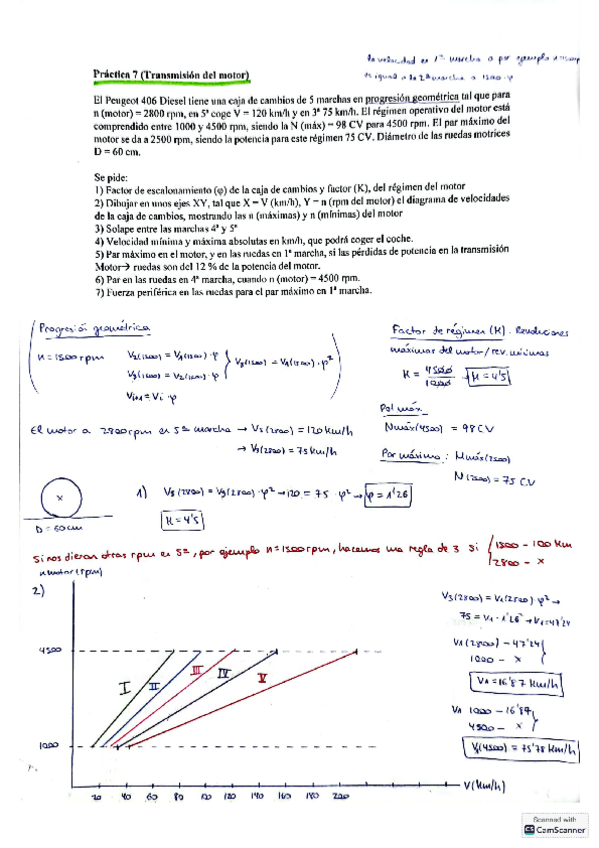 la velocidad en 1ª marcha o por ejemplo
es igual a la 2ª marcha a 1500 · φ
Práctica 7 (Transmisión del motor)
El Peugeot 406 Diesel tiene una caja de cambios de 5 marchas en progresión geométrica tal que para
n (motor) = 2800 rpm, en 5ª coge V = 120 km/h y en 3ª 75 km/h. El régimen operativo del motor está
comprendido entre 1000 y 4500 rpm, siendo la N (máx) = 98 CV para 4500 rpm. El par máximo del
motor se da a 2500 rpm, siendo la potencia para este régimen 75 CV. Diámetro de las ruedas motrices
D = 60 cm.
Se pide:
1) Factor de escalonamiento (φ) de la caja de cambios y factor (K), del régimen del motor
2) Dibujar en unos ejes XY, tal que X = V (km/h), Y = n (rpm del motor) el diagrama de velocidades
de la caja de cambios, mostrando las n (máximas) y n (mínimas) del motor
3) Solape entre las marchas 4ª y 5ª
4) Velocidad mínima y máxima absolutas en km/h, que podrá coger el coche.
5) Par máximo en el motor, y en las ruedas en 1ª marcha, si las pérdidas de potencia en la transmisión
Motor→ ruedas son del 12 % de la potencia del motor.
6) Par en las ruedas en 4ª marcha, cuando n (motor) = 4500 rpm.
7) Fuerza periférica en las ruedas para el par máximo en 1ª marcha.
Progresión geométrica
n = 1500 rpm
V2(1500) = V1(1500) · φ
V3(1500) = V2(1500) · φ
V3(1500) = V1(1500) · φ²
Vi+1 = Vi · φ
Factor de régimen (K). Revoluciones
máximas del motor/rev. mínimas
K = 4500/1000 → K = 4'5
Pot máx
Nmáx(4500) = 98 CV
Par máximo: Mmáx(2500)
N(2500) = 75 CV
El motor a 2800 rpm en 5ª marcha → V5(2800) = 120 km/h
→ V3(2800) = 75 km/h
D = 60 cm
1) V5(2800) = V3(2800) · φ² → 120 = 75 · φ² → φ = 1'26
K = 4'5
Si nos dieran otras rpm en 5ª, por ejemplo n = 1500 rpm, hacemos una regla de 3 si
1500 - 100 km
2800 - x
2)
n motor (rpm)
4500
1000
I
II
III
IV
V
20 40 60 80 100 120 140 160 180 200
V (km/h)
V3(2800) = V1(2800) · φ² →
75 = V1 · 1'26² → V1 = 47'24
V1(2800) - 47'24
1000 - x
V1 = 16'87 km/h
V1 1000 - 16'87
4500 - x
V1(4500) = 75'78 km/h
Scanned with
CS CamScanner